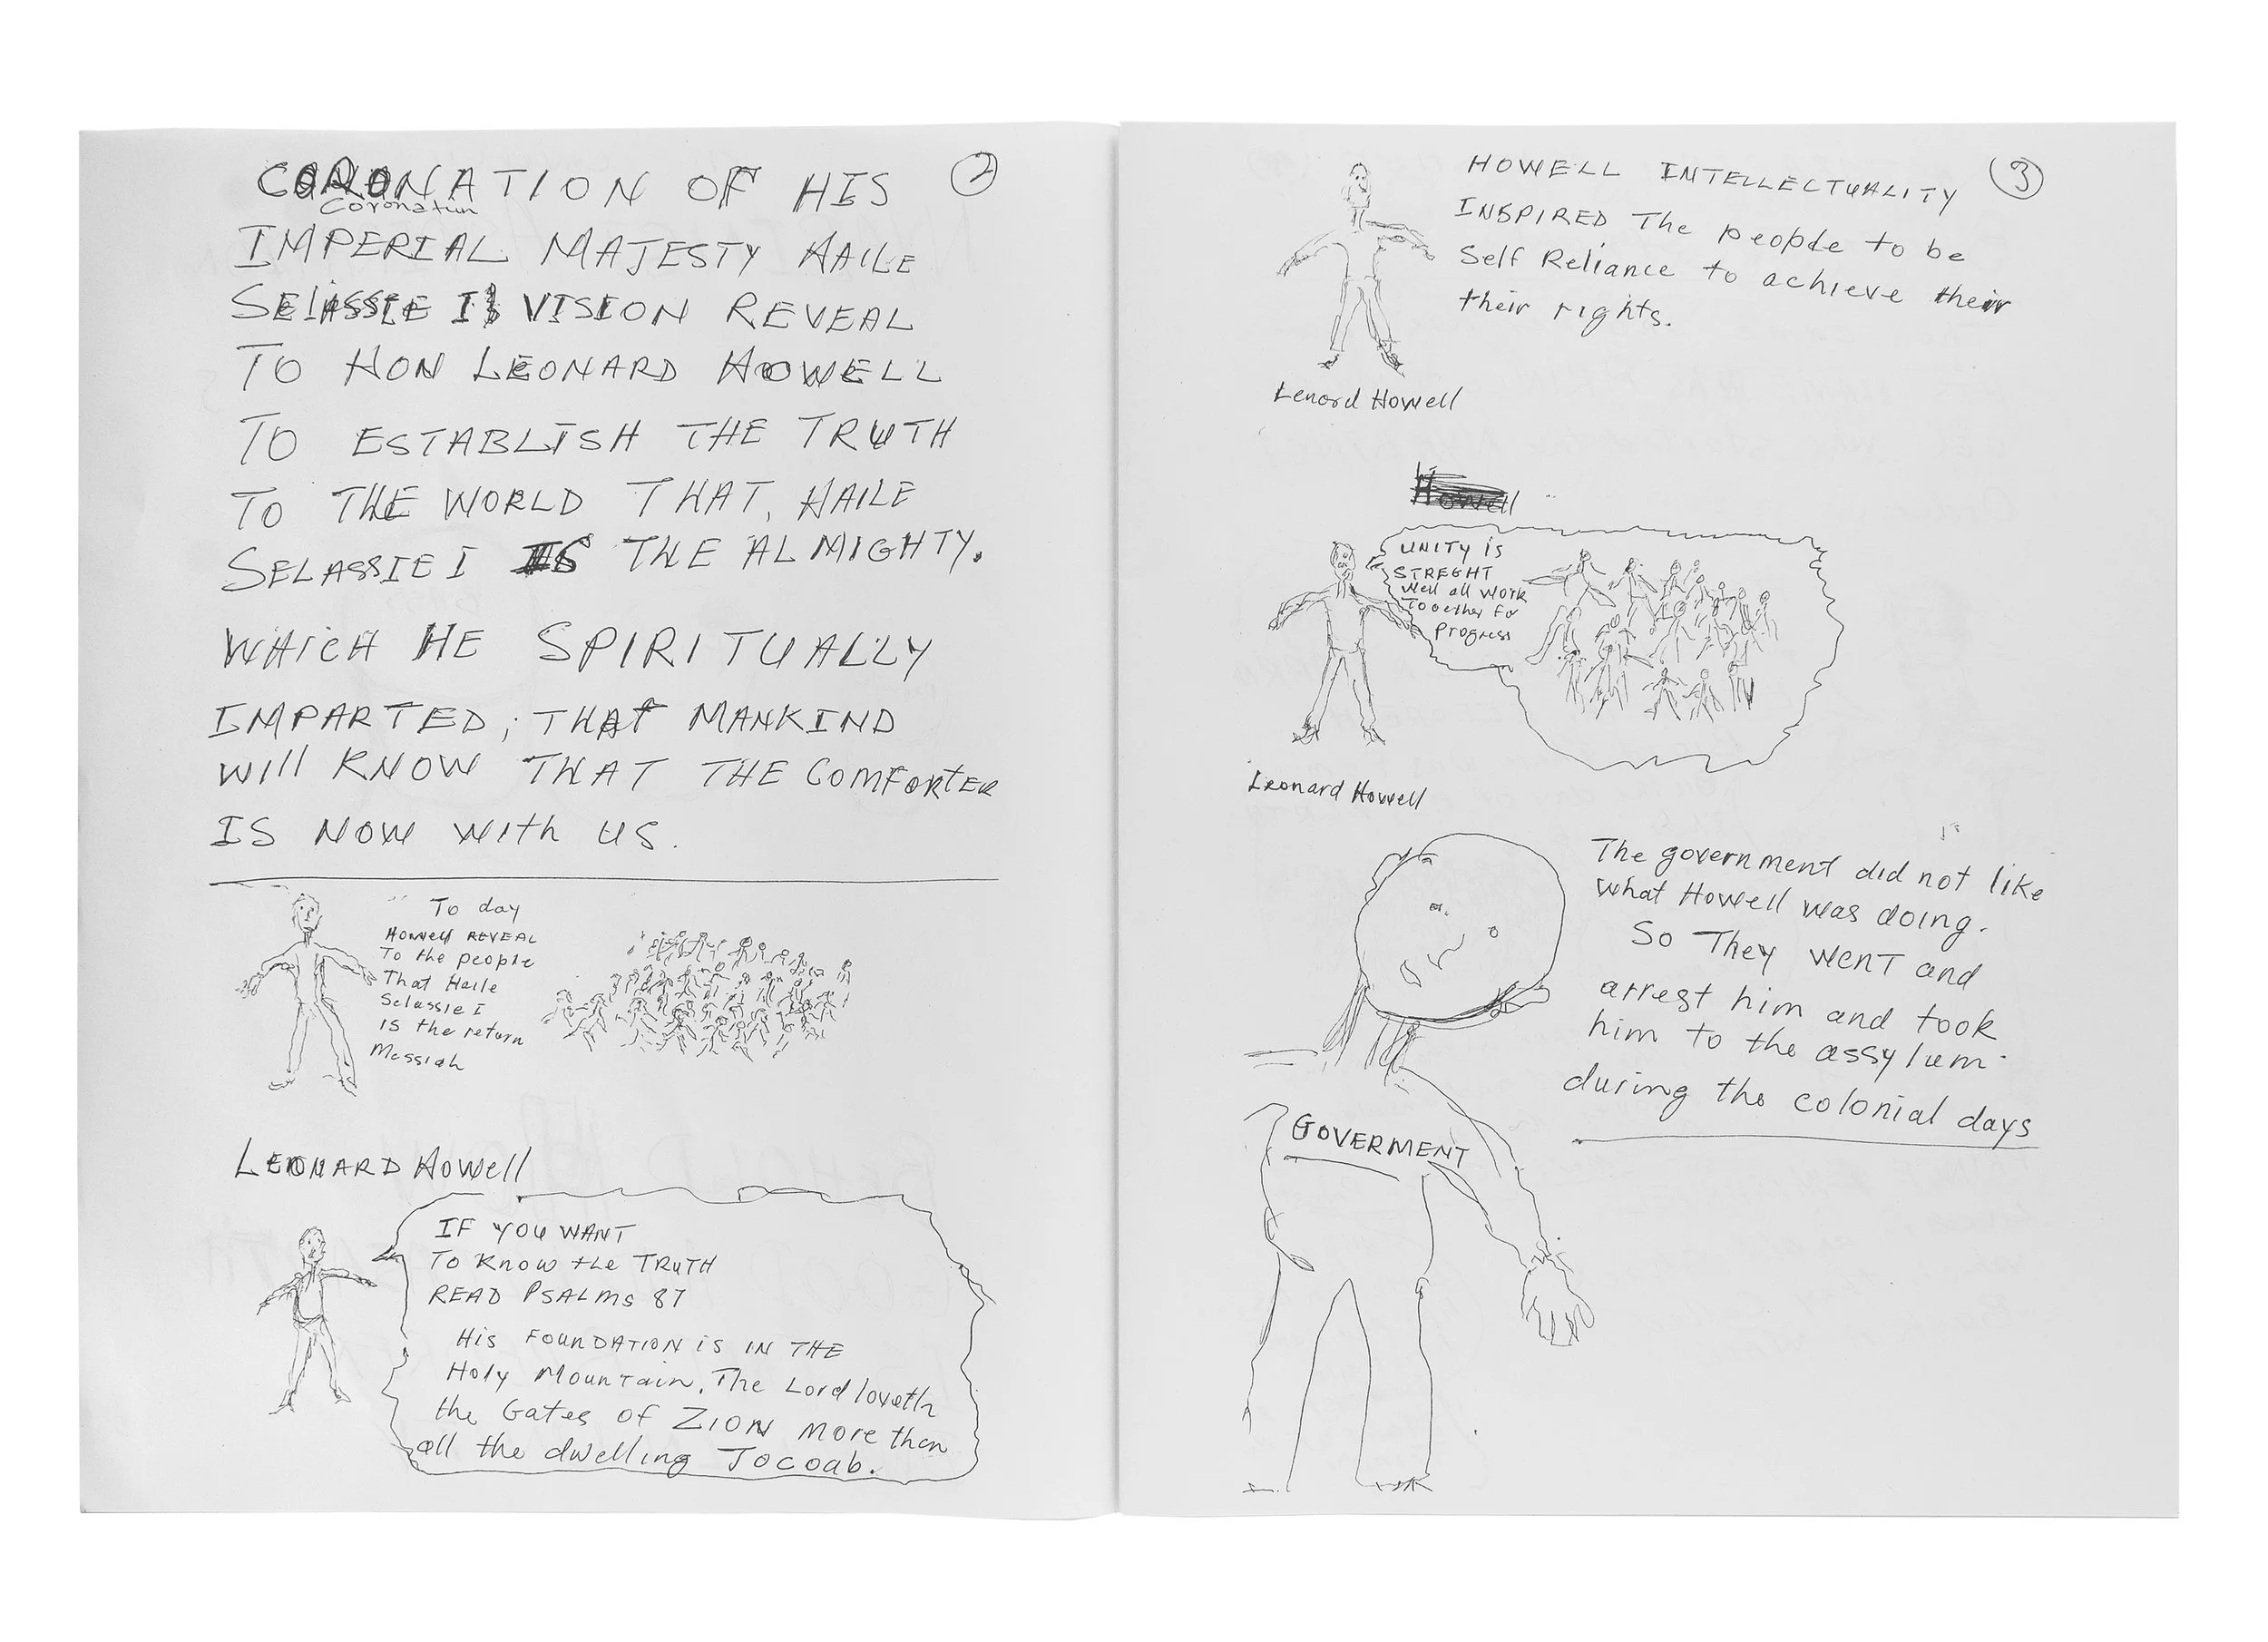 CORONATION OF HIS
Coronation
2
IMPERIAL MAJESTY HAILE
SELASSIE I VISION REVEAL
TO HON LEONARD HOWELL
TO ESTABLISH THE TRUTH
TO THE WORLD THAT, HAILE
SELASSIE I IS THE ALMIGHTY.
WHICH HE SPIRITUALLY
IMPARTED; THAT MANKIND
WIll KNOW THAT THE COMFORTER
IS NOW WITH US.
To day
Howell REVEAL
To the people
That Haile
Selassie I
is the return
Messiah
LEONARD Howell
IF YOU WANT
To Know the TRUTH
READ PSALMS 87
His FOUNDATION is IN THE
Holy Mountain. The Lord loveth
the Gates of ZION more than
all the dwelling Jocoab.
3
HOWELL INTELLECTUALITY
INSPIRED The people to be
Self Reliance to achieve their
their rights.
Lenord Howell
Howell
UNITY is
STREGHT
Well all work
Together for
Progress
Leonard Howell
The government did not like
what Howell was doing.
So They went and
arrest him and took
him to the assylum
during the colonial days
GOVERMENT